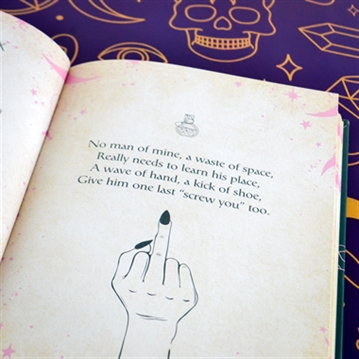 No man of mine, a waste of space,
Really needs to learn his place,
A wave of hand, a kick of shoe,
Give him one last "screw you" too.